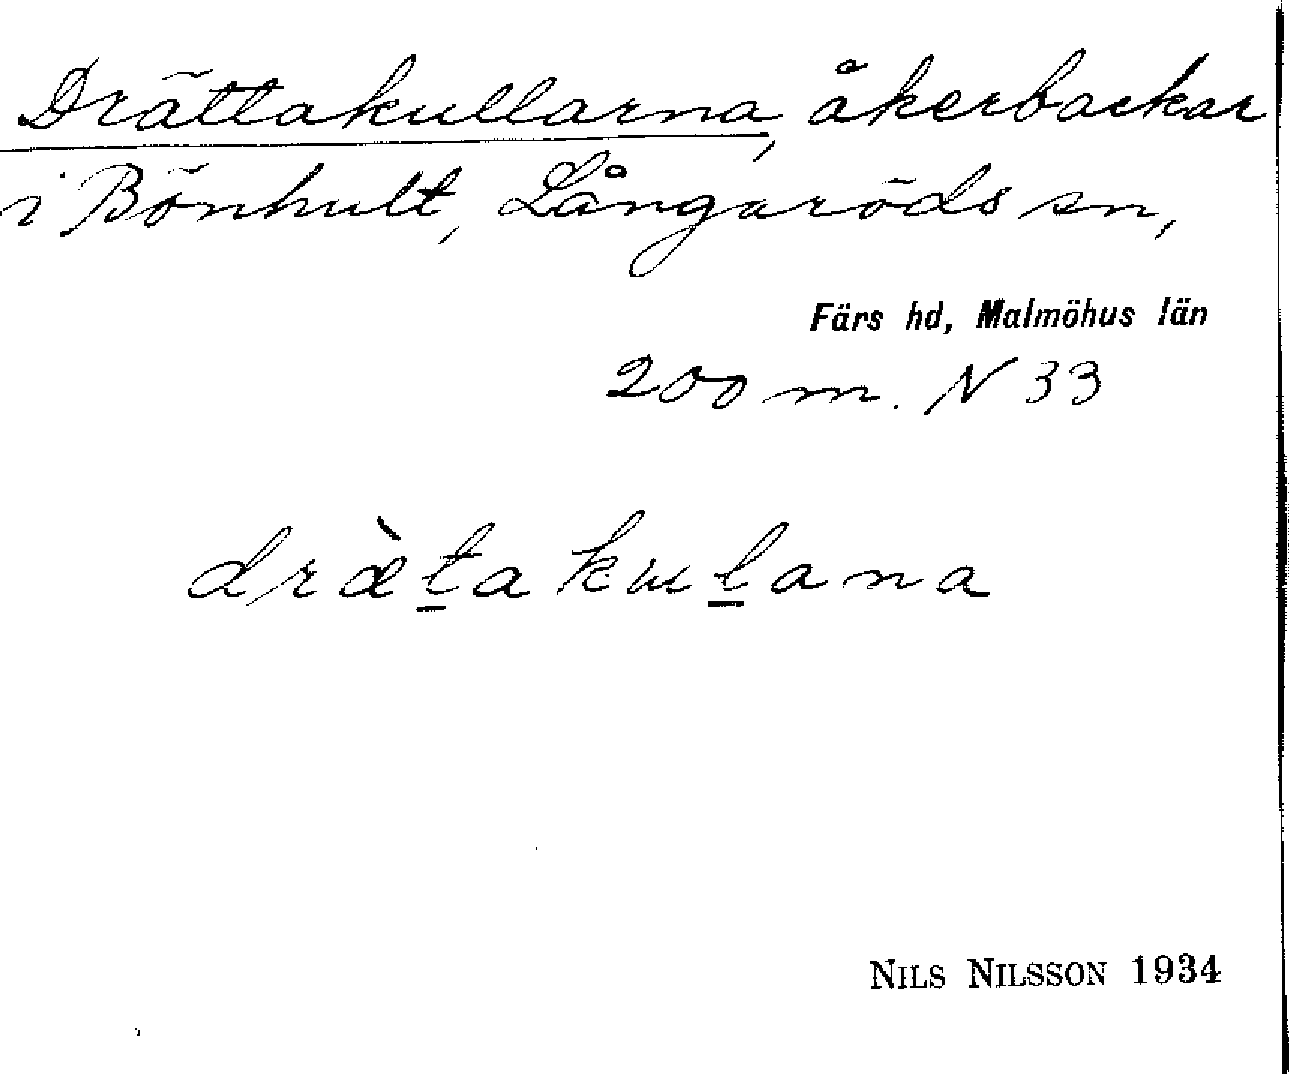 Drättakullarna, åkerbackar
i Bönhult, Långaröds sn,
Färs hd, Malmöhus län
200 m. N 33
dræ̀t̲a kul̲ana
NILS NILSSON 1934